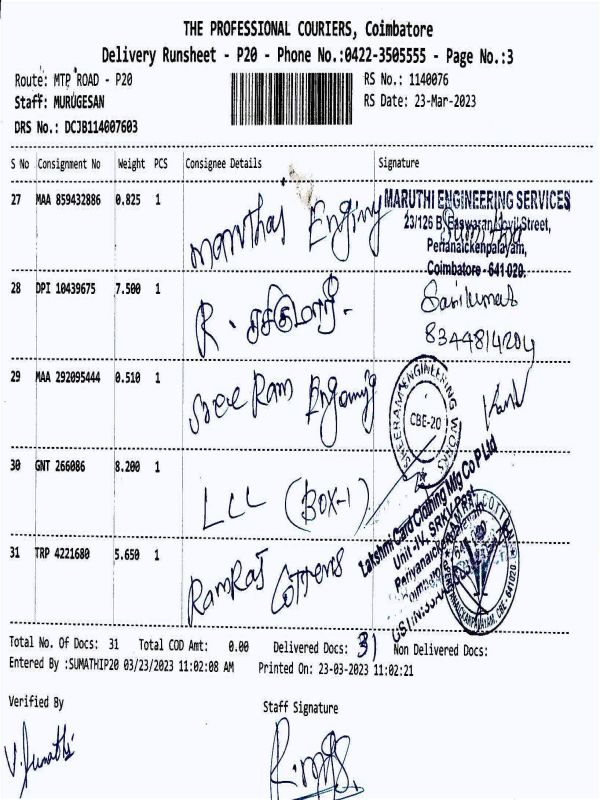 THE PROFESSIONAL COURIERS, Coimbatore
Delivery Runsheet - P20 - Phone No.:0422-3505555 - Page No.:3
Route: MTP ROAD - P20 RS No.: 1140076
Staff: MURUGESAN RS Date: 23-Mar-2023
DRS No.: DCJB114007603
S No Consignment No Weight PCS Consignee Details Signature
27 MAA 859432886 0.825 1 Maruthas Enginy
MARUTHI ENGINEERING SERVICES
23/126 B, Easwaran Kovil Street,
Perianaickenpalayam,
Coimbatore - 641 020.
28 DPI 10439675 7.500 1 R. சசிகுமார். Sasikumar
8344814204
29 MAA 292095444 0.510 1 Sree Ram
SREERAM ENGINEERING WORKS
CBE-20
30 GNT 266086 8.200 1 LCC (BOX-1)
Lakshmi Card Clothing Mfg Co P Ltd
Unit -IV, SRKV Post
Periyanaicken
31 TRP 4221680 5.650 1 RamRaj Cottons
CBE- 641020.
Total No. Of Docs: 31 Total COD Amt: 0.00 Delivered Docs: 31 Non Delivered Docs:
Entered By :SUMATHIP20 03/23/2023 11:02:08 AM Printed On: 23-03-2023 11:02:21
Verified By Staff Signature
V. Sumathi